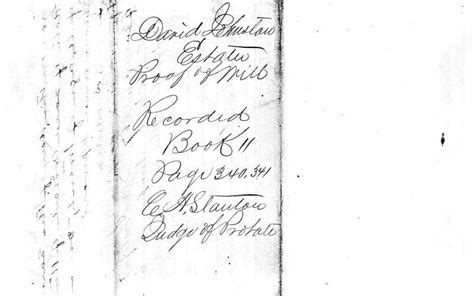 David Johnston
Estate
Proof of Will
Recorded
Book 11
Page 340,341
E. A. Stanton
Judge of Probate